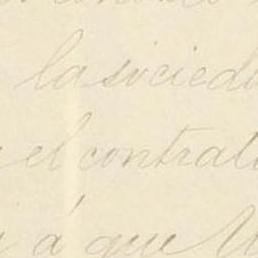 la socied
el contrat
á que